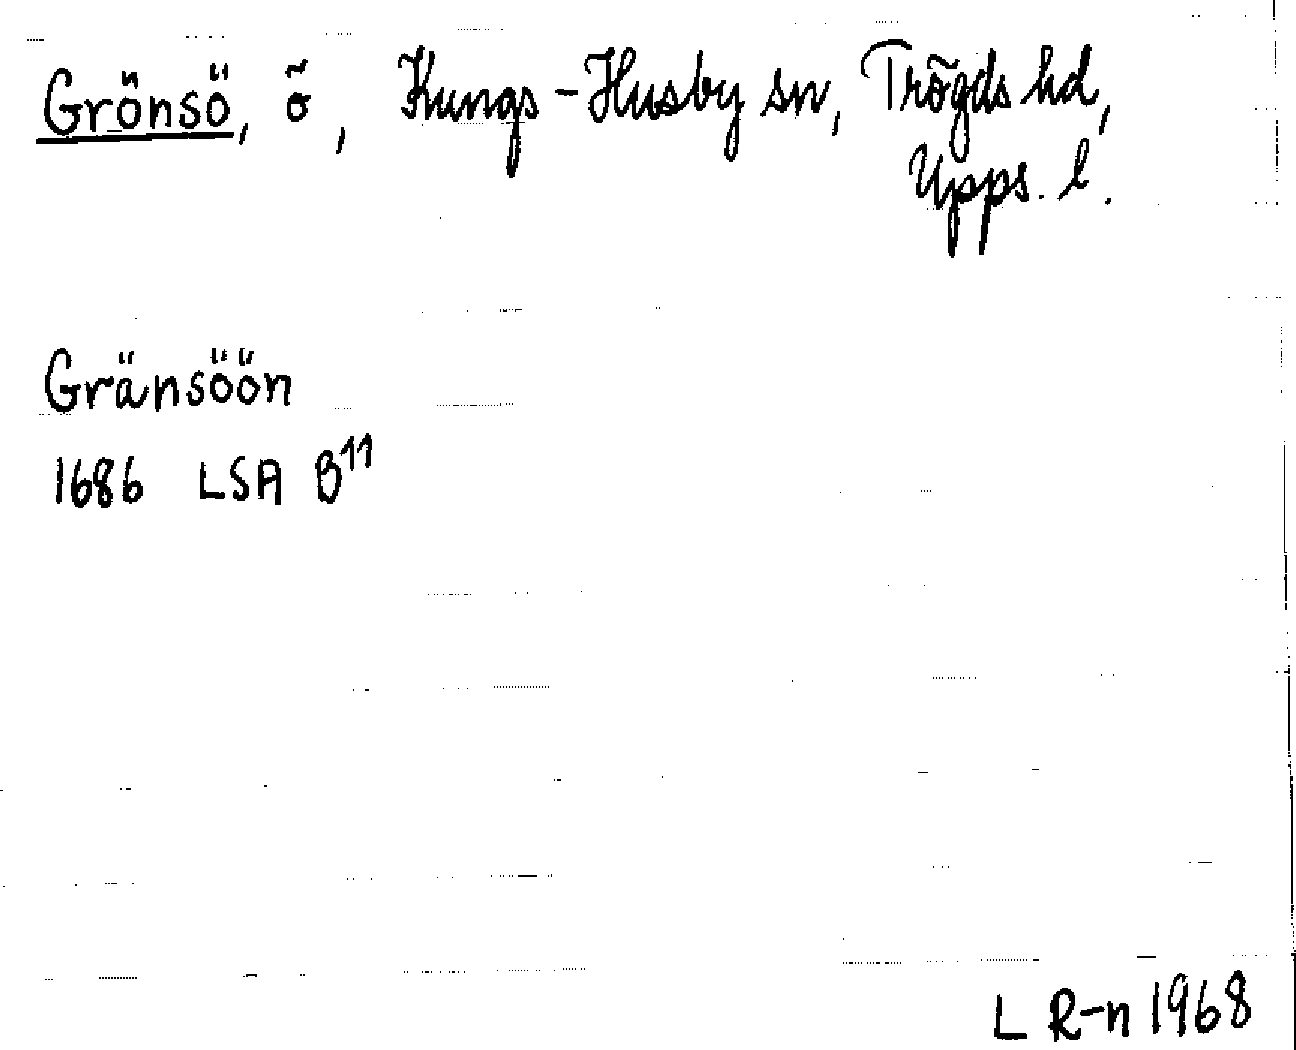 Grönsö, ö, Kungs-Husby sn, Trögds hd,
Upps. l.
Gränsöön
1686 LSA B11
L R-n 1968